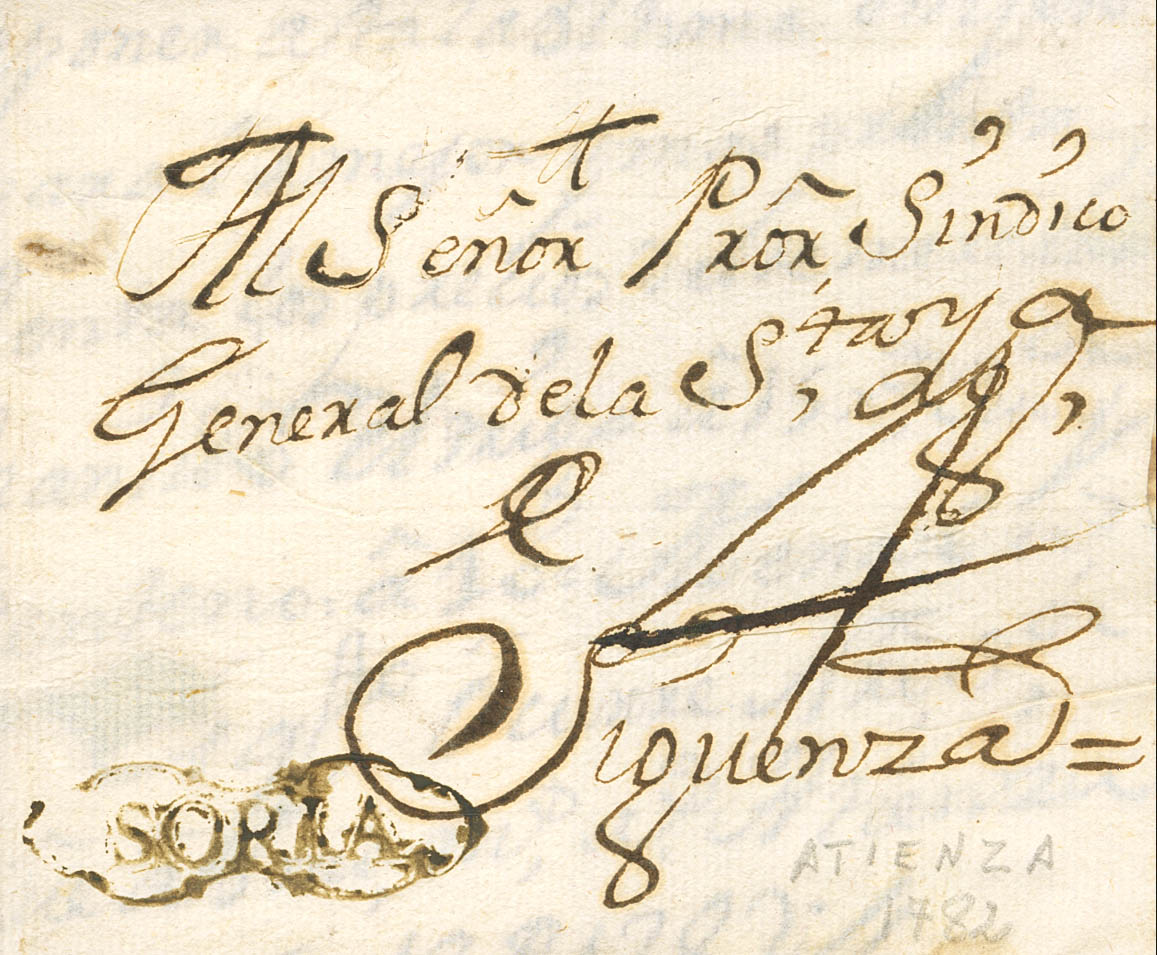 Al Señor Pror̃ Sindico
General dela S,
Siguenza =
SORIA
ATIENZA
1782